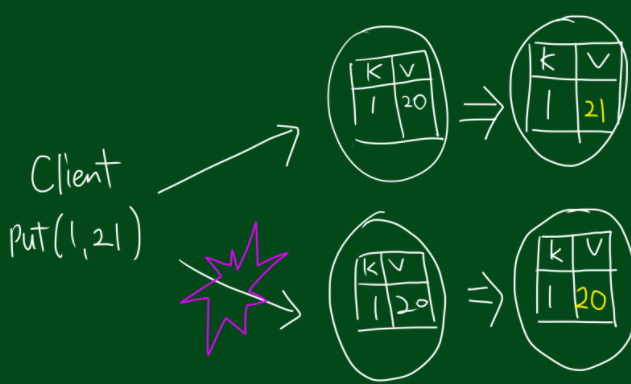 Client
put(1,21)
K V
1 20
K V
1 21
K V
1 20
K V
1 20